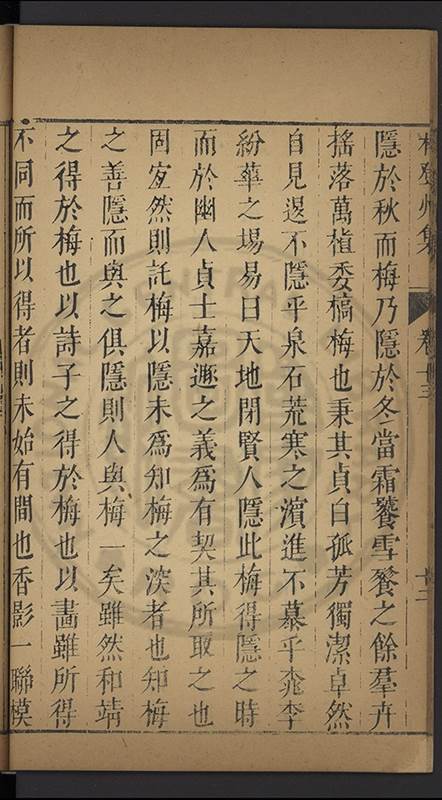 林登州集
卷十三
十二
隱於秋而梅乃隱於冬當霜饕雪餮之餘羣卉
搖落萬植委槁梅也秉其貞白孤芳獨潔卓然
自見退不隱乎泉石荒寒之濵進不慕乎桃李
紛華之場易曰天地閉賢人隱此梅得隱之時
而於幽人貞士嘉遯之義爲有契其所取之也
固宜然則託梅以隱未爲知梅之深者也知梅
之善隱而與之俱隱則人與梅一矣雖然和靖
之得於梅也以詩子之得於梅也以畵雖所得
不同而所以得者則未始有間也香影一聯模